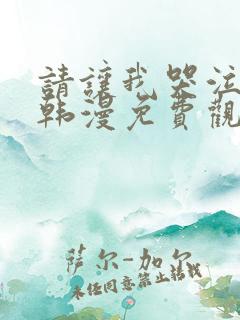 請讓我哭泣
韩漫免費觀
萨尔-加尔
未经同意禁止转载